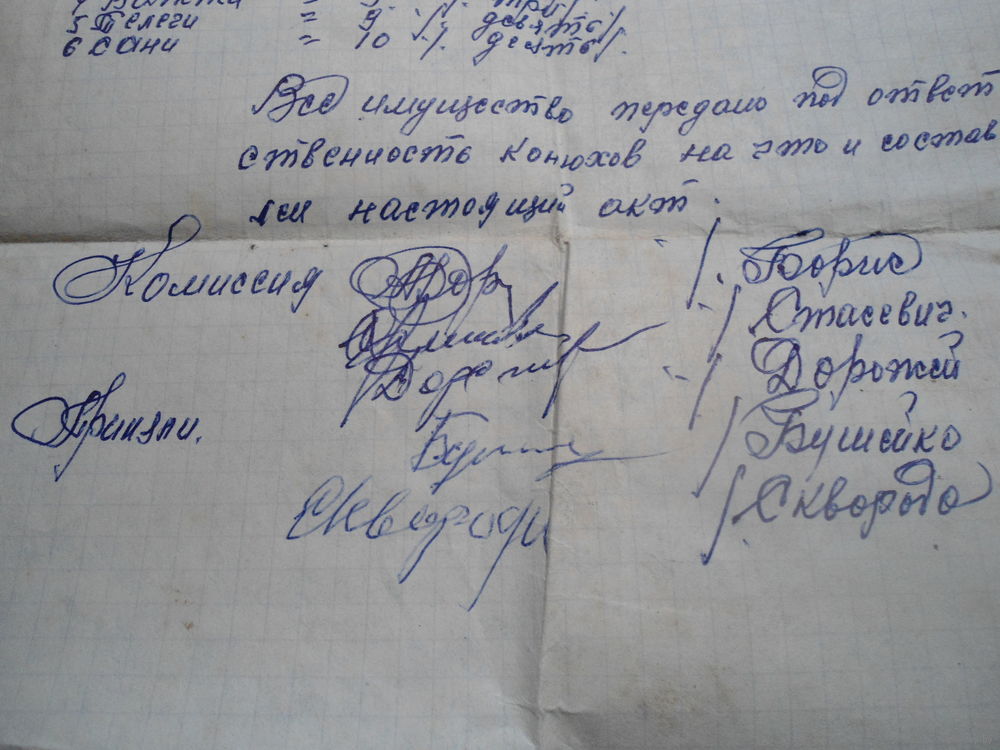 5 Телеги = 9 /. девять/.
6 Сани = 10 /. десять/.
Всё имущество передано под ответ
ственность конюхов на что и состав
лен настоящий акт.
Комиссия /. Борис
/ Стасевич.
/ Дорожей
Приняли. / Бушейко
Сквород / Скворода